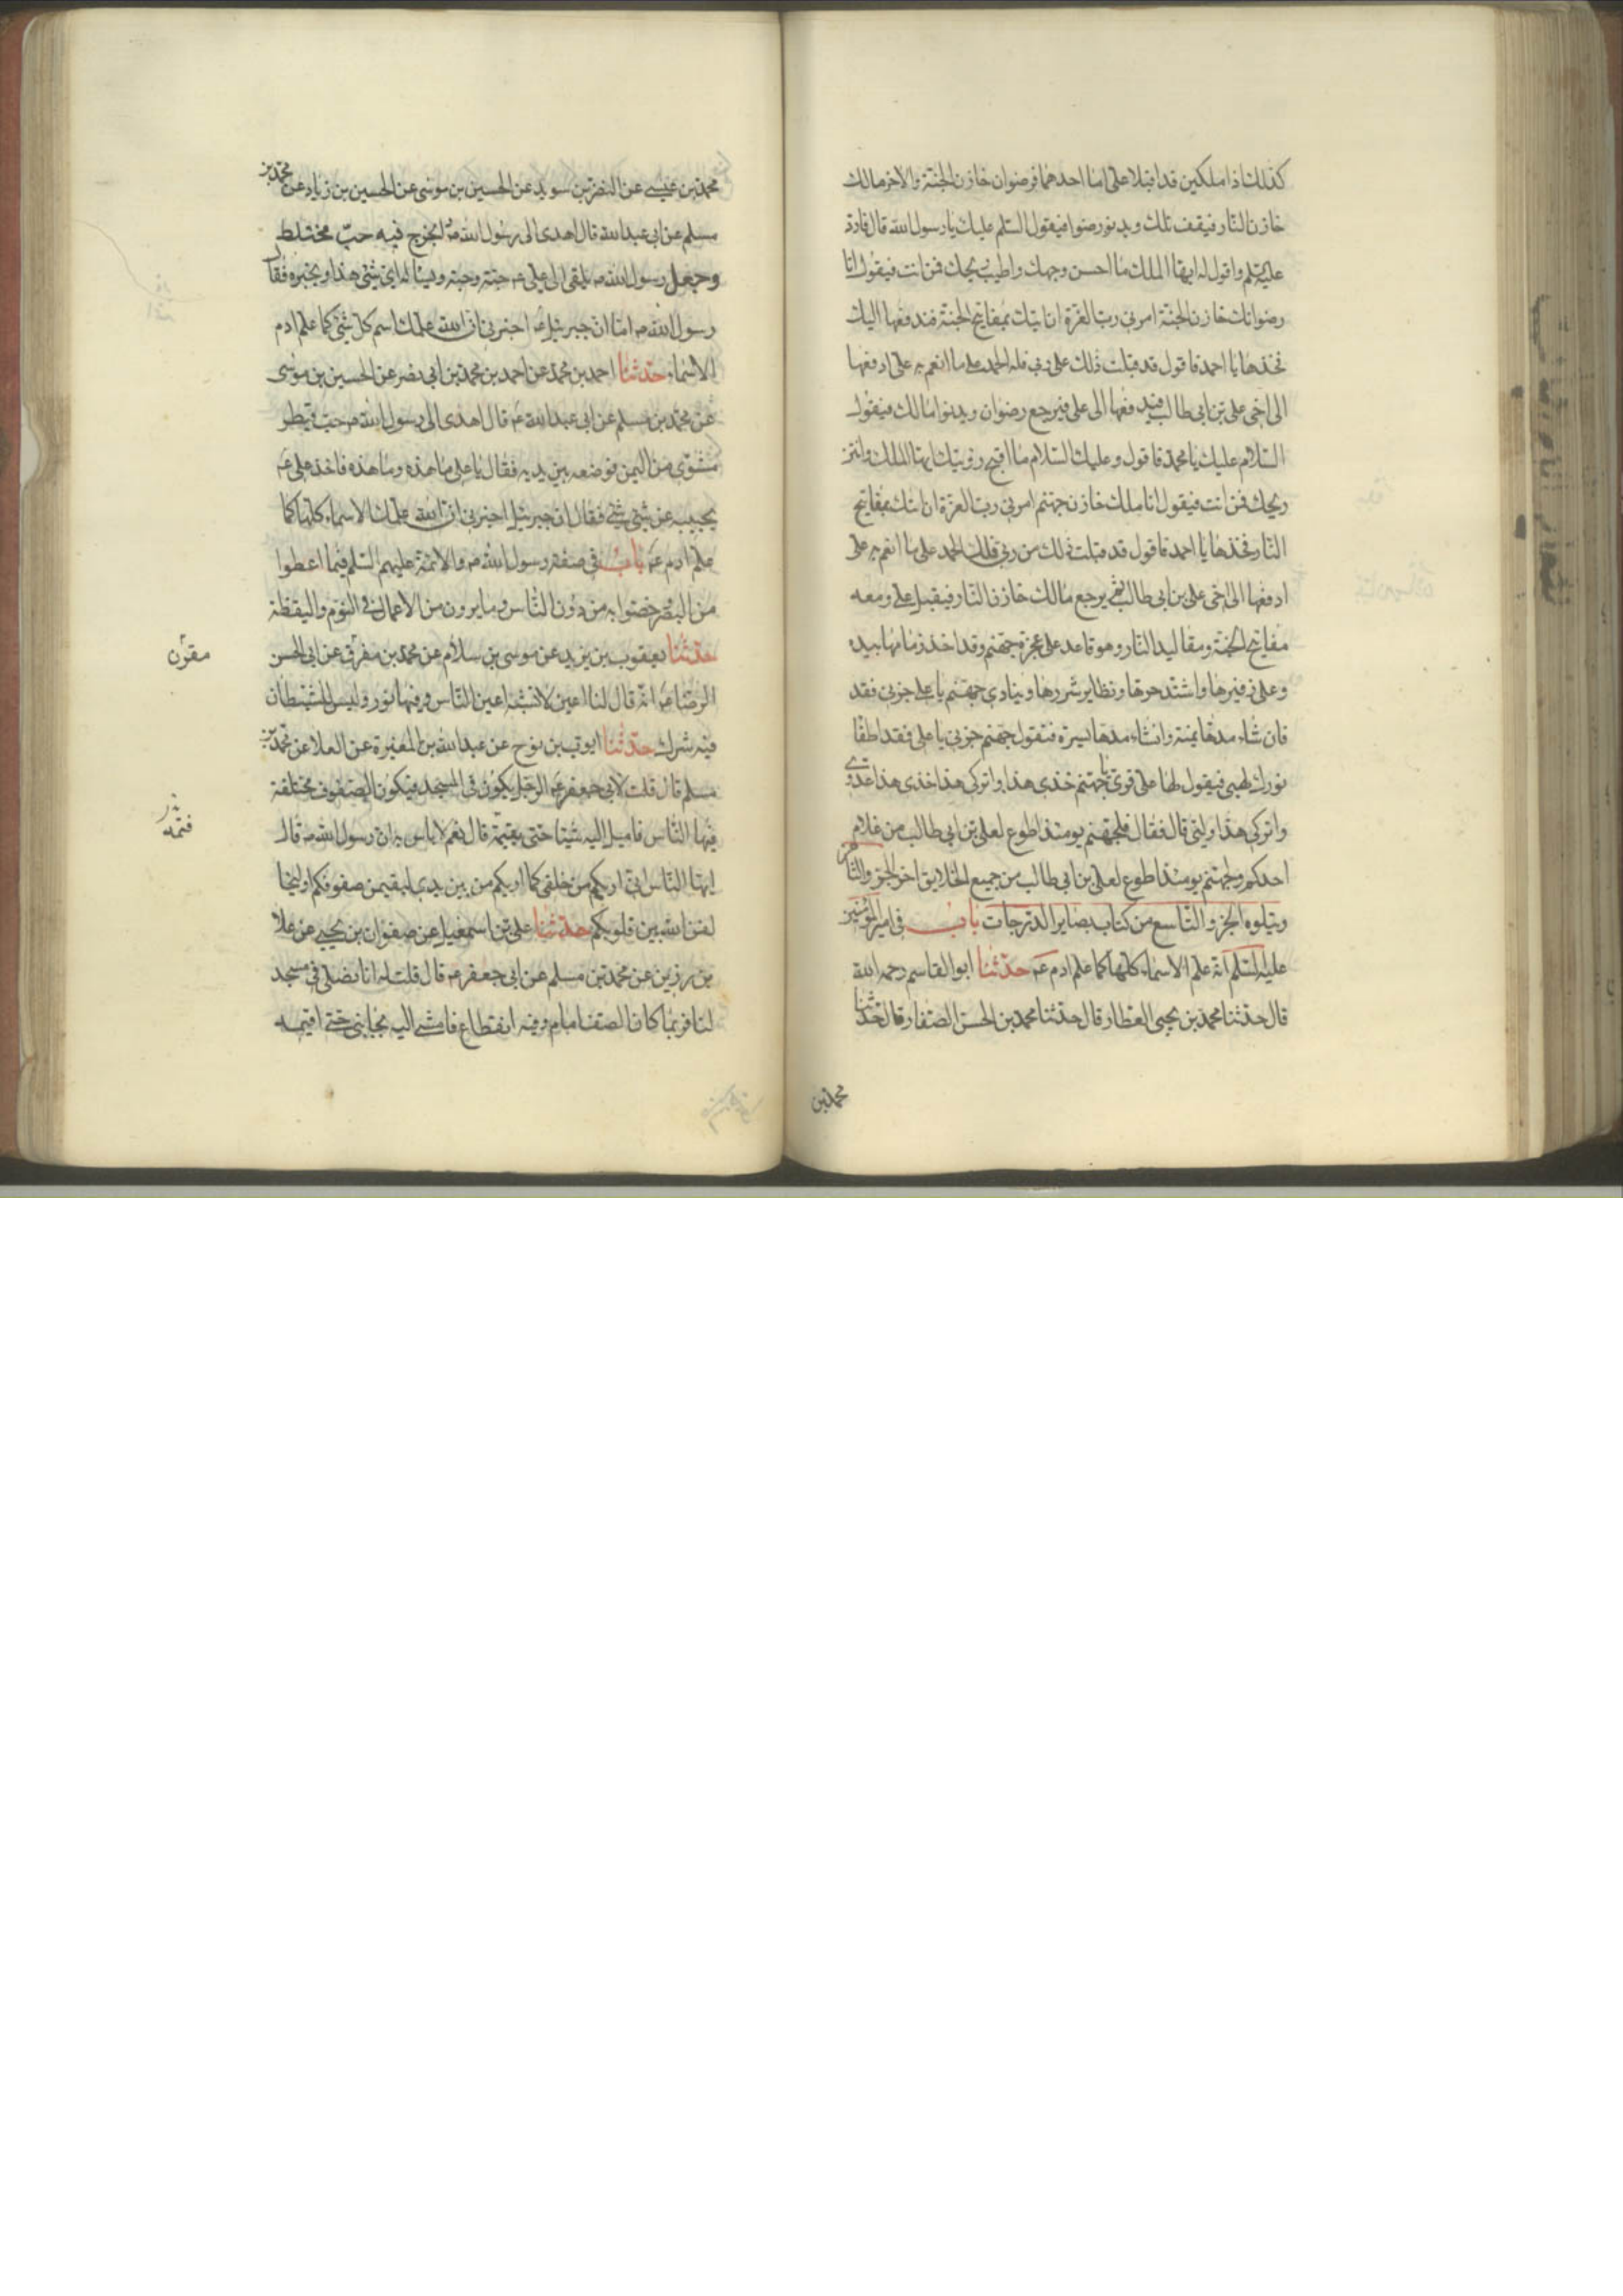 كذلك اذا ملكين قد اقبلا على اما احدهما فرضوان خازن الجنة والاخر مالك
خازن النار فيقف مالك ويدنو رضوان فيقول السلم عليك يا رسول الله قال فارد
عليه السلم واقول له ايها الملك ما احسن وجهك واطيب ريحك فمن انت فيقول انا
رضوان خازن الجنة امرني رب العزة ان اتيك بمفاتيح الجنة فندفعها اليك
فخذها يا احمد فاقول قد قبلت ذلك على ربي فله الحمد على ما انعم به على ادفعها
الى اخي علي بن ابي طالب فيدفعها الى علي فيرجع رضوان ويدنوا مالك فيقول
السلام عليك يا محمد فاقول وعليك السلام ما اقبح رؤيتك ايها الملك وانتن
ريحك فمن انت فيقول انا ملك خازن جهنم امرني رب العزة ان اتيك بمفاتيح
النار فخذها يا احمد فاقول قد قبلت ذلك من ربي فلك الحمد على ما انعم به على
ادفعها الى اخي علي بن ابي طالب ثم يرجع مالك خازن النار فيقبل علي ومعه
مفاتيح الجنة ومقاليد النار وهو قاعد على عجزة جهنم وقد اخذ زمامها بيده
وعلى زفيرها واشتد حرها وتطاير شررها وينادي جهنم يا علي جزني فقد
فان شاء مدها يمنة وان شاء مدها يسرة فتقول جهنم جزني يا علي فقد اطفا
نورك لهبي فيقول لها علي قري يا جهنم خذي هذا واتركي هذا خذي هذا عدوي
واتركي هذا وليي قال فقال فلجهنم يومئذ اطوع لعلي بن ابي طالب من غلام
احدكم ولجهنم يومئذ اطوع لعلي بن ابي طالب من جميع الخلايق اخر الجزو الثامن
ويتلوه الجزو التاسع من كتاب بصاير الدرجات باب في امير المؤمنين
عليه السلم انه علم الاسماء كلها كما علم ادم عم حدثنا ابو القاسم رحمه الله
قال حدثنا محمد بن يحيى العطار قال حدثنا محمد بن الحسن الصفار قال حدثنا
محمد بن
محمد بن عيسى عن النضر بن سويد عن الحسين بن موسى عن الحسين بن زياد عن محمد بن
مسلم عن ابي عبد الله قال اهدى الى رسول الله ص فيه حب مختلط
وجعل رسول الله ص يلقى الى علي عم حبة وحبة ويساله اي شئ هذا ويخبره فقال
رسول الله ص اما ان جبرئيل عم اخبرني ان الله علمك اسم كل شئ كما علم ادم
الاسماء حدثنا احمد بن محمد عن احمد بن محمد بن ابي نصر عن الحسين بن موسى
عن محمد بن مسلم عن ابي عبد الله عم قال اهدى الى رسول الله ص حب
من اليمن فوضعه بين يديه فقال يا علي ما هذه وما هذه فاخذ علي عم
يجيبه عن شئ شئ فقال ان جبرئيل اخبرني ان الله علمك الاسماء كلها كما
علم ادم عم باب في صفة رسول الله ص والائمة عليهم السلم فيما اعطوا
من البصر وخصوا به من دون الناس وما يرون من الاعمال في النوم واليقظة
حدثنا يعقوب بن يزيد عن موسى بن سلام عن محمد بن مقرن عن ابي الحسن
مقرن
الرضا عم انه قال لنا اعين لا تشبه اعين الناس وفيها نور وليس للشيطان
فيه شرك حدثنا ايوب بن نوح عن عبد الله بن المغيرة عن العلا عن محمد بن
مسلم قال قلت لابي جعفر عم الرجل يكون في المسجد فيكون الصفوف مختلفة
فيها الناس فاميل اليه شيئا حتى يقيمه قال نعم لا باس به ان رسول الله ص قال
ايها الناس اني اريكم من خلفي كما اريكم من بين يدي لتقيمن صفوفكم او ليخالفن الله بين قلوبكم
حدثنا علي بن اسمعيل عن صفوان بن يحيى عن علا
بن رزين عن محمد بن مسلم عن ابي جعفر عم قال قلت له انا نصلي في مسجد
لنا فربما كان الصف امام وفيه انقطاع فامشي اليه بجانبي حتى اقيمه